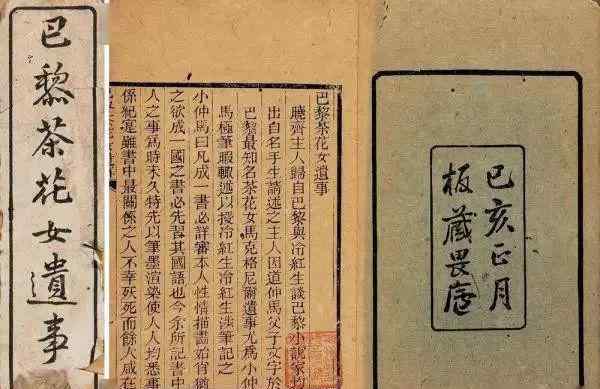 巴黎茶花女遺事
巴黎茶花女遺事
曉齋主人歸自巴黎與冷紅生談巴黎小說家均
出自名手生請述之主人因道仲馬父子文字於
巴黎最知名茶花女馬克格尼爾遺事尤為小仲
馬極筆暇輒述以授冷紅生冷紅生涉筆記之
小仲馬曰凡成一書必詳審本人性情描畫始肖猶
之欲成一國之書必先習其國語也今余所記書中
人之事為時未久特先以筆墨渲染使人人均悉事
係紀實雖書中最關係之人不幸殀死而餘人咸在
己亥正月
板藏畏廬